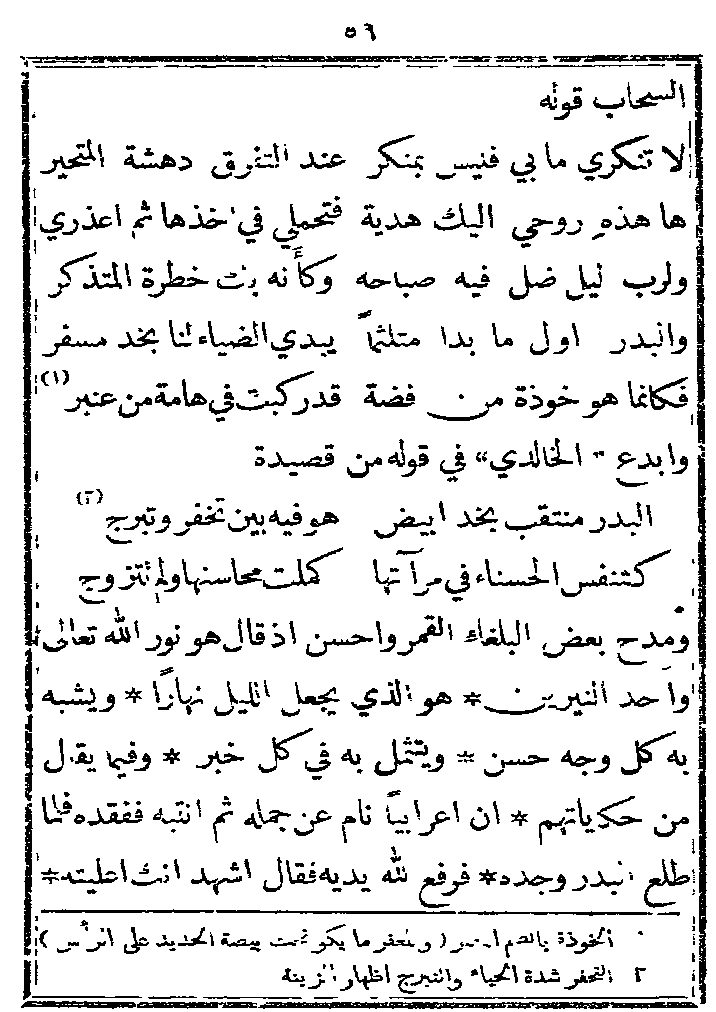 ٥٦
السحاب قوله
لا تنكري ما بي فليس بمنكر عند التفرق دهشة المتحير
ها هذه روحي اليك هدية فتحملي في اخذها ثم اعذري
ولرب ليل ضل فيه صباحه وكأنه بك خطرة المتذكر
والبدر اول ما بدا متلثمًا يبدي الضياء لنا بخد مسفر
فكانما هو خوذة من فضة قد ركبت في هامة من عنبر (١)
وابدع " الخالدي" في قوله من قصيدة
البدر منتقب بخد ابيض هو فيه بين تخفر وتبرج (٢)
كتنفس الحسناء في مرآتها كملت محاسنها ولم تتزوج
ومدح بعض البلغاء القمر واحسن اذ قال هو نور الله تعالى
واحد النيرين * هو الذي يجعل الليل نهارًا * ويشبه
به كل وجه حسن * ويتثمل به في كل خبر * وفيما يقال
من حكاياتهم * ان اعرابيًا نام عن جمله ثم انتبه ففقده فلما
طلع البدر وجده * فرفع لله يديه فقال اشهد انك اعليته *
١ الخوذة بالضم المغفر ( والمغفر ما يكون تحت بيضة الحديد على الرأس )
٢ التخفر شدة الحياء والتبرج اظهار الزينة